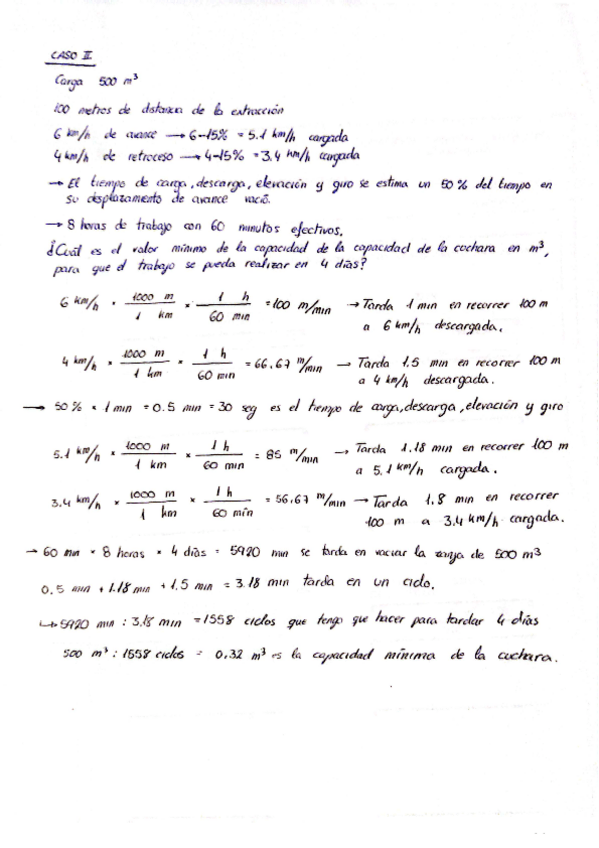 CASO II
Carga 500 m³
100 metros de distancia de la extracción
6 km/h de avance → 6-15% = 5.1 km/h cargada
4 km/h de retroceso → 4-15% = 3.4 km/h cargada
→ El tiempo de carga, descarga, elevación y giro se estima un 50% del tiempo en
su desplazamiento de avance vacío.
→ 8 horas de trabajo con 60 minutos efectivos.
¿Cuál es el valor mínimo de la capacidad de la capacidad de la cuchara en m³,
para que el trabajo se pueda realizar en 4 días?
6 km/h * 1000 m / 1 km * 1 h / 60 min = 100 m/min → Tarda 1 min en recorrer 100 m
a 6 km/h descargada.
4 km/h * 1000 m / 1 km * 1 h / 60 min = 66,67 m/min → Tarda 1.5 min en recorrer 100 m
a 4 km/h descargada.
→ 50% * 1 min = 0.5 min = 30 seg es el tiempo de carga, descarga, elevación y giro
5.1 km/h * 1000 m / 1 km * 1 h / 60 min = 85 m/min → Tarda 1.18 min en recorrer 100 m
a 5.1 km/h cargada.
3.4 km/h * 1000 m / 1 km * 1 h / 60 min = 56,67 m/min → Tarda 1.8 min en recorrer
100 m a 3.4 km/h cargada.
→ 60 min * 8 horas * 4 días = 5920 min se tarda en vaciar la zanja de 500 m³
0.5 min + 1.18 min + 1.5 min = 3.18 min tarda en un ciclo.
↳ 5920 min : 3.18 min = 1558 ciclos que tengo que hacer para tardar 4 días
500 m³ : 1558 ciclos = 0.32 m³ es la capacidad mínima de la cuchara.